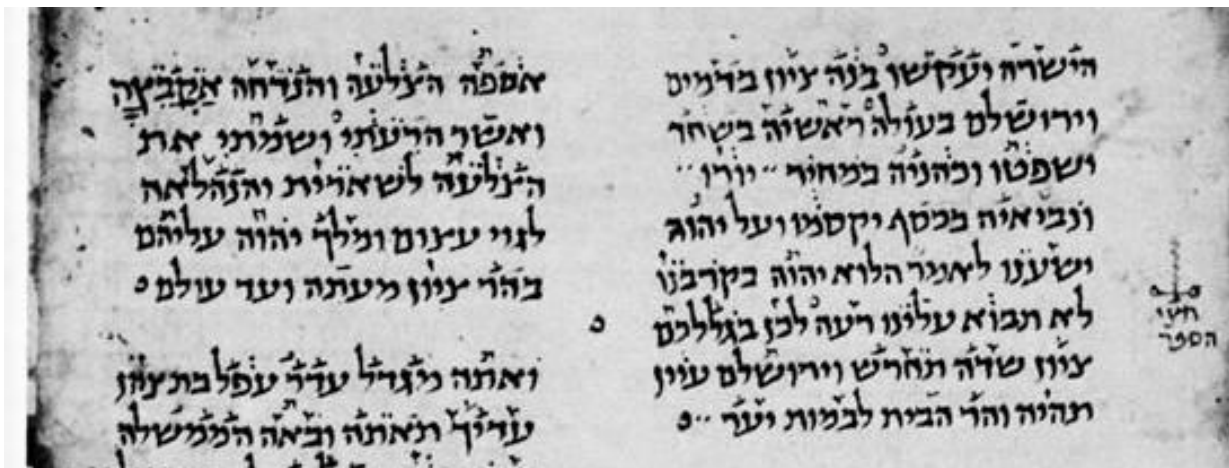 הישרה יעקשו בנה ציון בדמים
וירושלם בעולה ראשיה בשחד
ישפטו וכהניה במחיר יורו
ונביאיה בכסף יקסמו ועל יהוה
ישענו לאמר הלוא יהוה בקרבנו
לא תבוא עלינו רעה לכן בגללכם
ציון שדה תחרש וירושלם עיין
תהיה והר הבית לבמות יער
חצי
הספר
אספה הצלעה והנדחה אקבצה
ואשר הרעתי ושמתי את
הצלעה לשארית והנהלאה
לגוי עצום ומלך יהוה עליהם
בהר ציון מעתה ועד עולם
ואתה מיגדל עדר עפל בת ציון
עדיך תאתה ובאה הממשלה